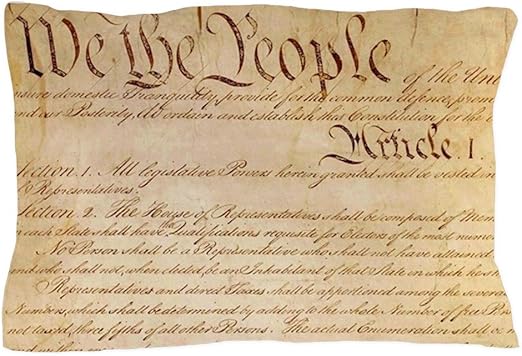 We the People of the Uni
nsure domestic Tranquility, provide for the common defence, prom
nd our Posterity, do ordain and establish this Constitution for the
Article. I.
Section. 1. All legislative Powers herein granted shall be vested in
f Representatives.
Section. 2. The House of Representatives shall be composed of Mem
n each State shall have the Qualifications requisite for Electors of the most numer
No Person shall be a Representative who shall not have attained
and who shall not, when elected, be an Inhabitant of that State in which he sh
Representatives and direct Taxes shall be apportioned among the severa
Numbers, which shall be determined by adding to the whole Number of free Per
not taxed, three fifths of all other Persons. The actual Enumeration shall be